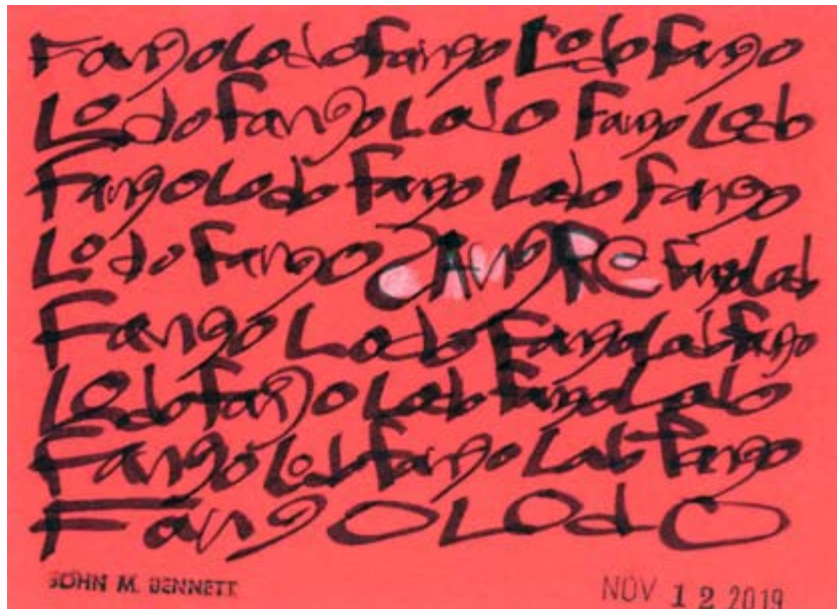 FangoLodoFango Lodo Fango
LodoFangoLodo Fango Lodo
FangoLodo Fango Lodo Fango
Lodo Fango SANgRE FangoLodo
Fango Lodo FangoLodoFango
LodoFango Lodo FangoLodo
FangoLodoFango LodoFango
FangOLOdO
JOHN M. BENNETT
NOV 12 2019